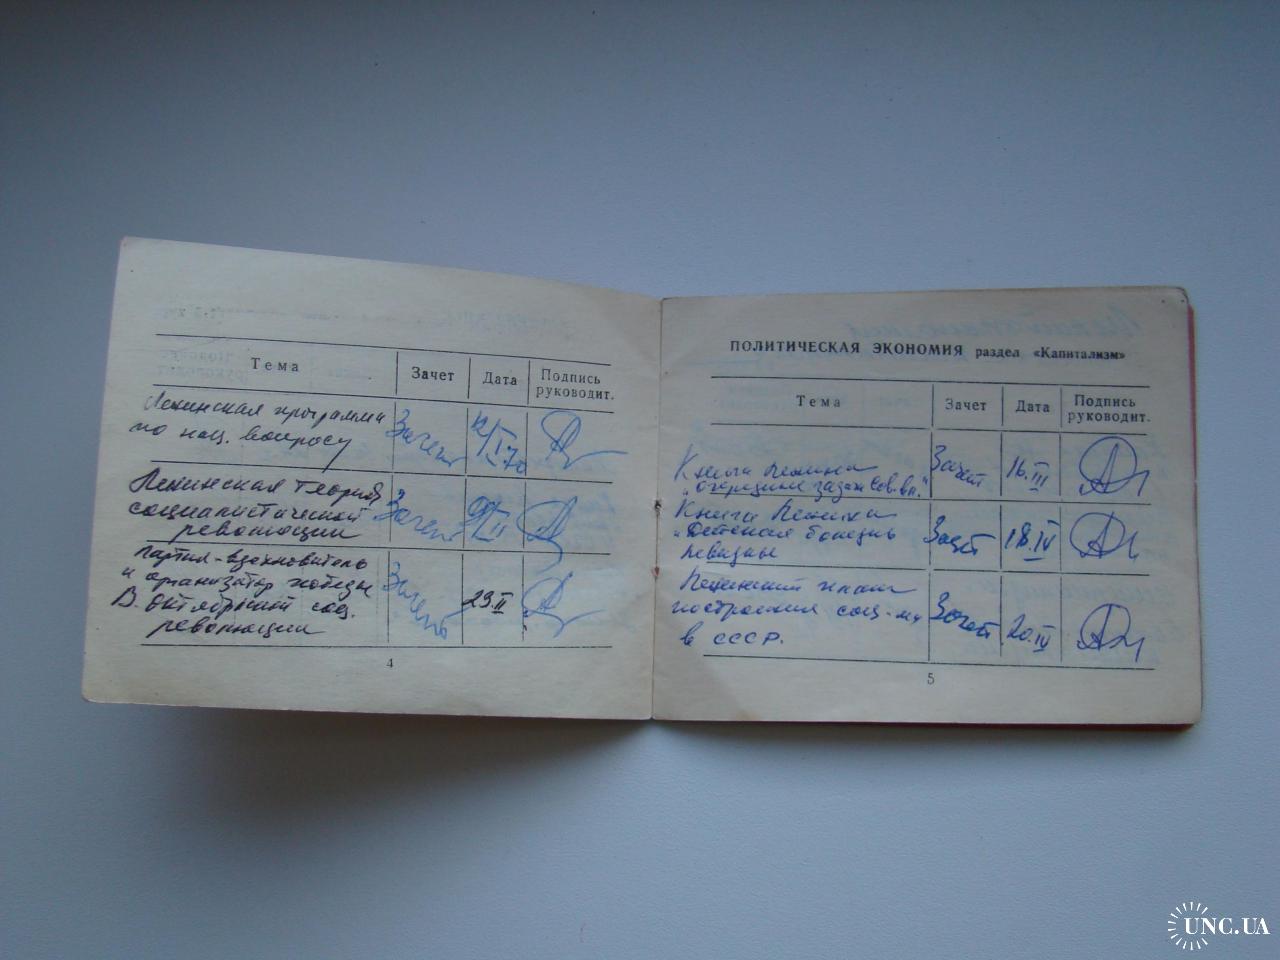 Тема Зачет Дата Подпись руководит.
Ленинская программа
по нац. вопросу
Зачет
Ленинская теория
социалистической
революции
Зачет
партия-вдохновитель
и организатор победы
В. Октябрьской соц.
революции
Зачет 23.II
4
ПОЛИТИЧЕСКАЯ ЭКОНОМИЯ раздел «Капитализм»
Тема Зачет Дата Подпись руководит.
Книга Ленина
"очередные задачи Сов. вл."
Зачет 16.III
Книга Ленина
"Детская болезнь
левизны
Зачет 18.IV
Ленинский план
построения соц-ма
в СССР.
Зачет 20.IV
5
UNC.UA